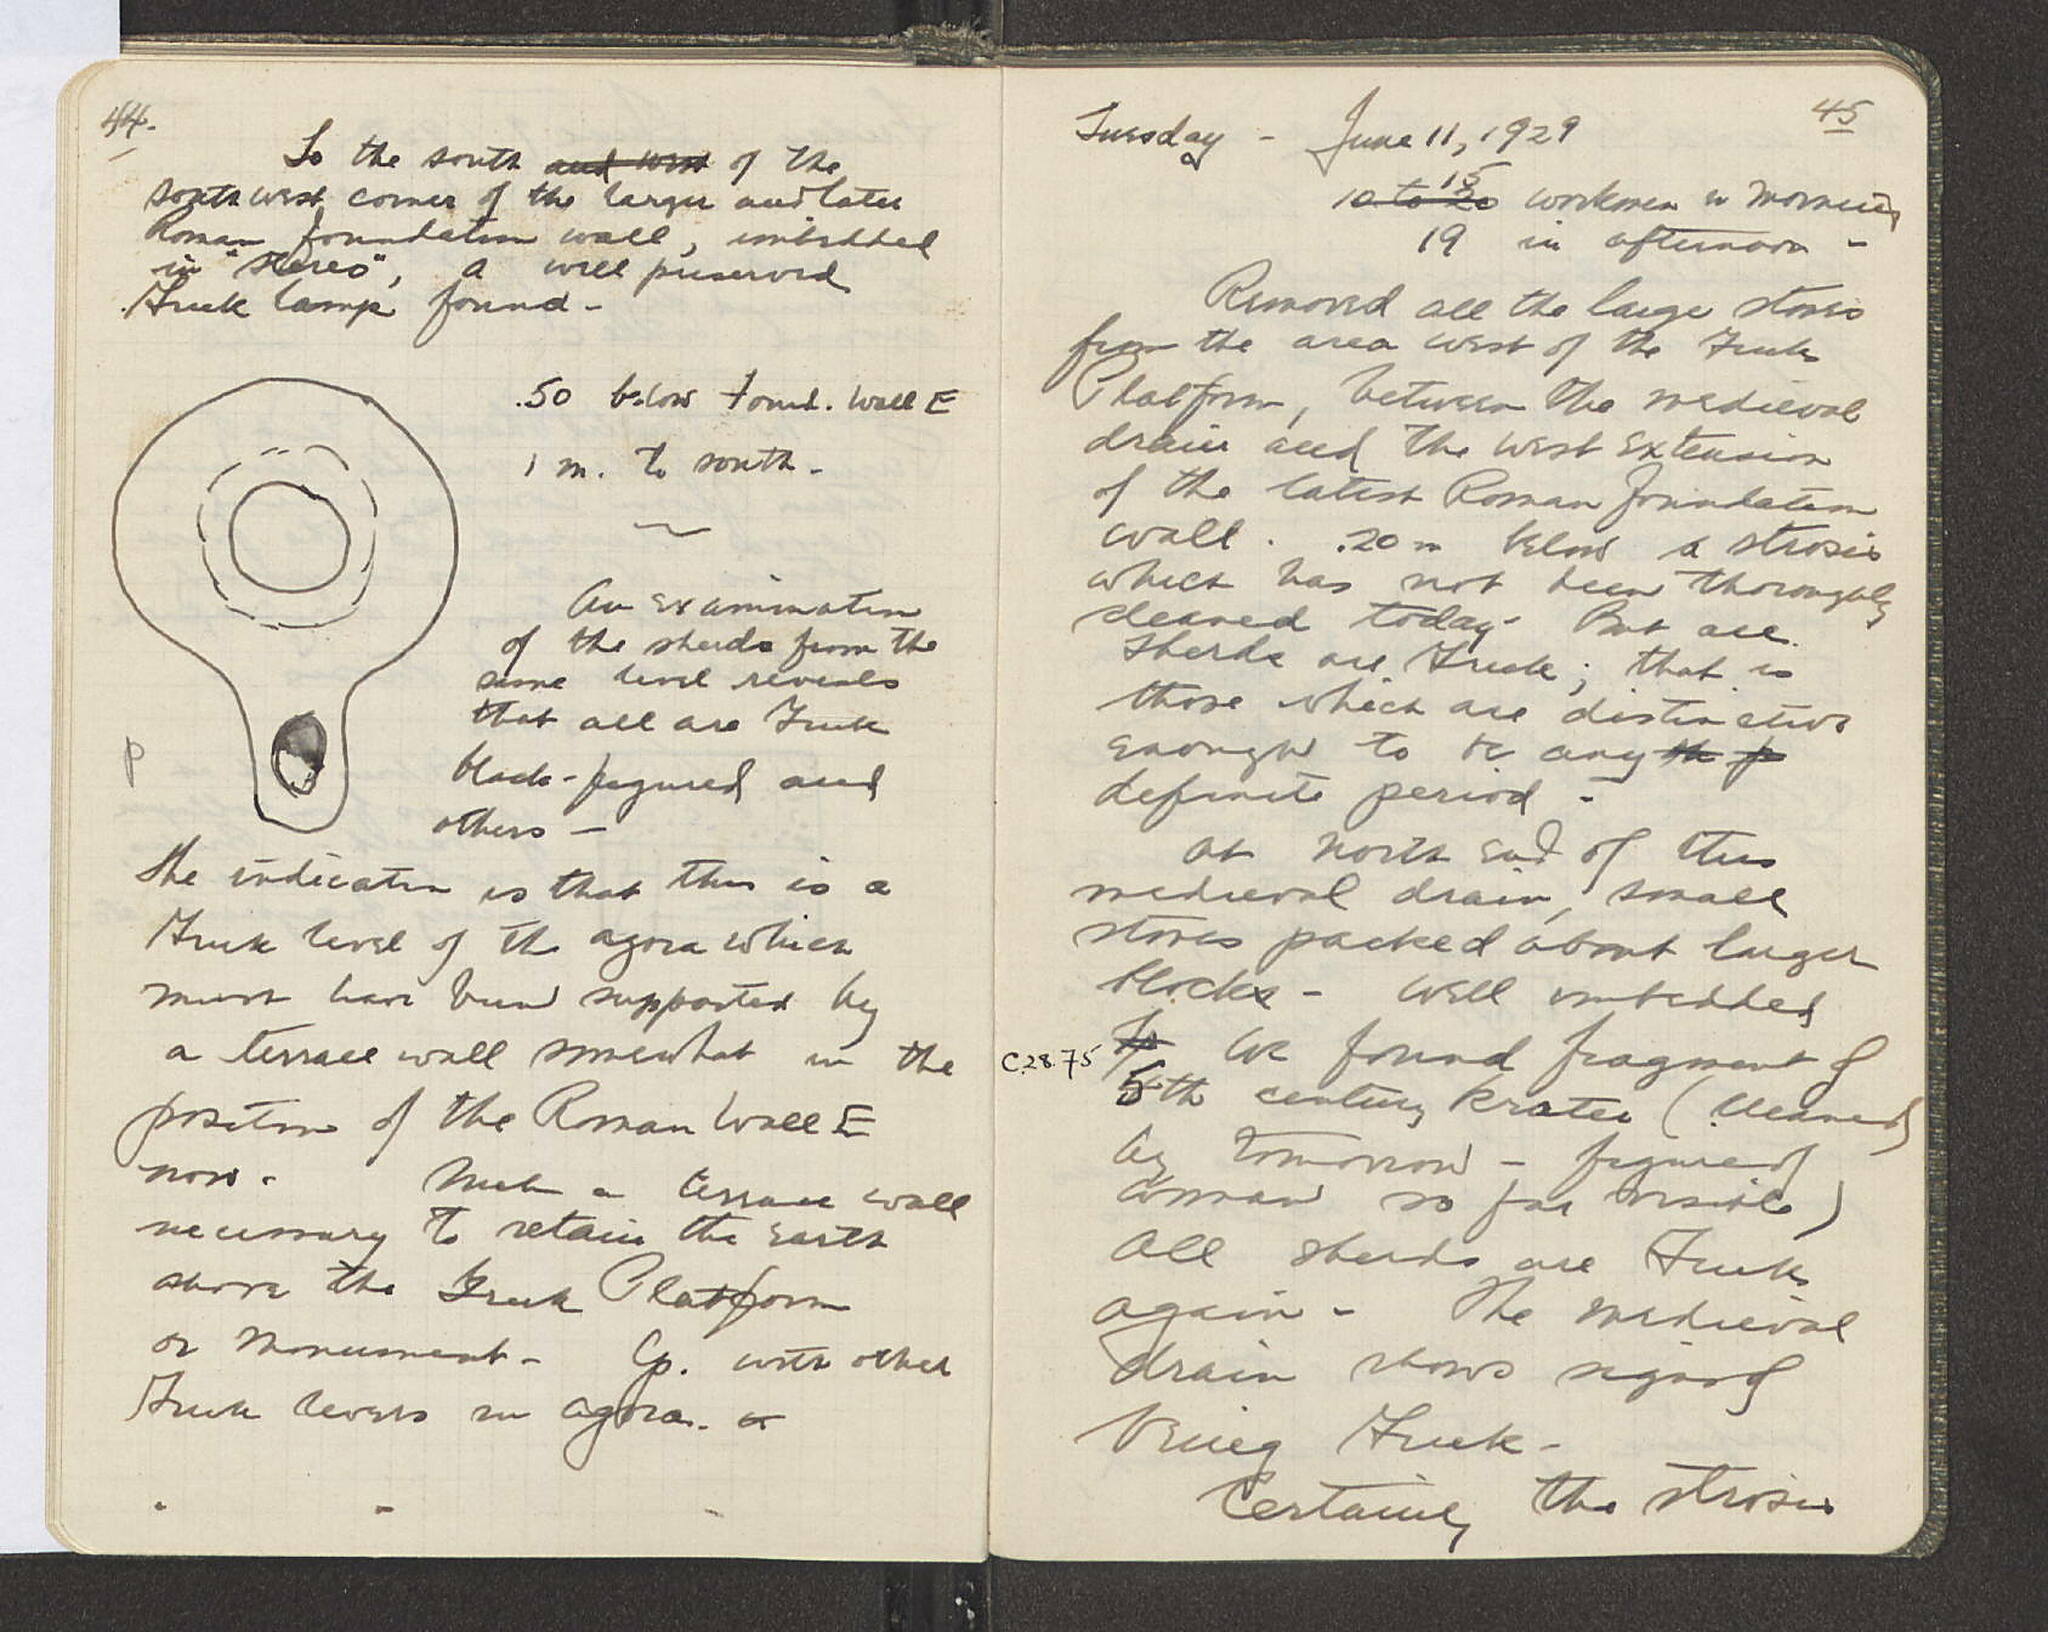 44.
To the south and west of the
southwest corner of the larger and later
Roman foundation wall, imbedded
in "stereo", a well preserved
Greek lamp found -
.50 below found. Wall E
1 m. to south -
An examination
of the sherds from the
same level reveals
that all are Greek
black-figured and
others -
P
The indication is that this is a
Greek level of the agora which
must have been supported by
a terrace wall somewhat in the
position of the Roman Wall E
now. Such a terrace wall
necessary to retain the earth
above the Greek Platform
or Monument - Cp. with other
Greek levels in agora.
45
Tuesday - June 11, 1929
15
10 to 20 workmen in morning
19 in afternoon -
Removed all the large stones
from the area west of the Greek
Platform, between the medieval
drain and the west extension
of the latest Roman foundation
wall. .20 m below a strosis
which has not been thoroughly
cleaned today - But all
sherds are Greek; that is
those which are distinctive
enough to be any
definite period -
At north end of this
medieval drain, small
stones packed about larger
blocks - Well imbedded
C.28.75 we found fragment of
5th century krater (Cleaned
by tomorrow - figure of
woman so far visible)
All sherds are Greek
again - The medieval
drain shows signs of
being Greek -
Certainly the strosis